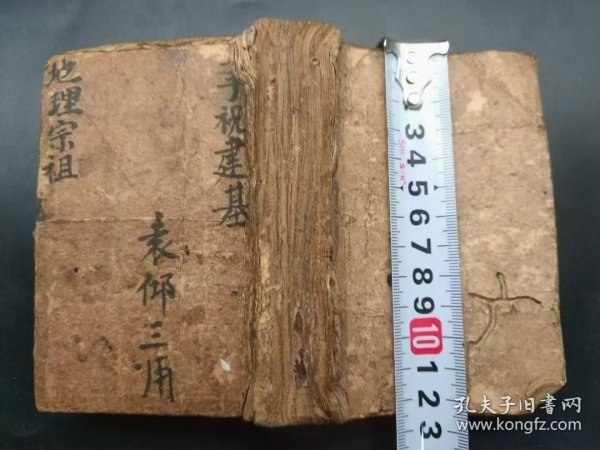 地理宗祖
手祝建基
袁仰三用
3
4
5
6
7
8
9
10
1
2
3
孔夫子旧书网
www.kongfz.com